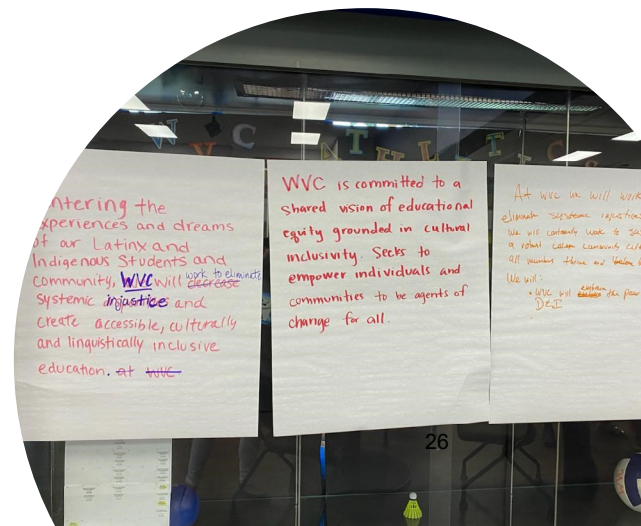 W V C ATHLETIC
entering the
experiences and dreams
of our Latinx and
Indigenous Students and
community, WVC will work to eliminate
decrease
systemic injustice and
create accessible, culturally
and linguistically inclusive
education. at WVC
WVC is committed to a
shared vision of educational
equity grounded in cultural
inclusivity. Seeks to
empower individuals and
communities to be agents of
change for all.
At WVC we will work
eliminate systemic injustice
we will continually work to
a robust campus community
all members thrive and
We will:
• WVC will the
DEI
26